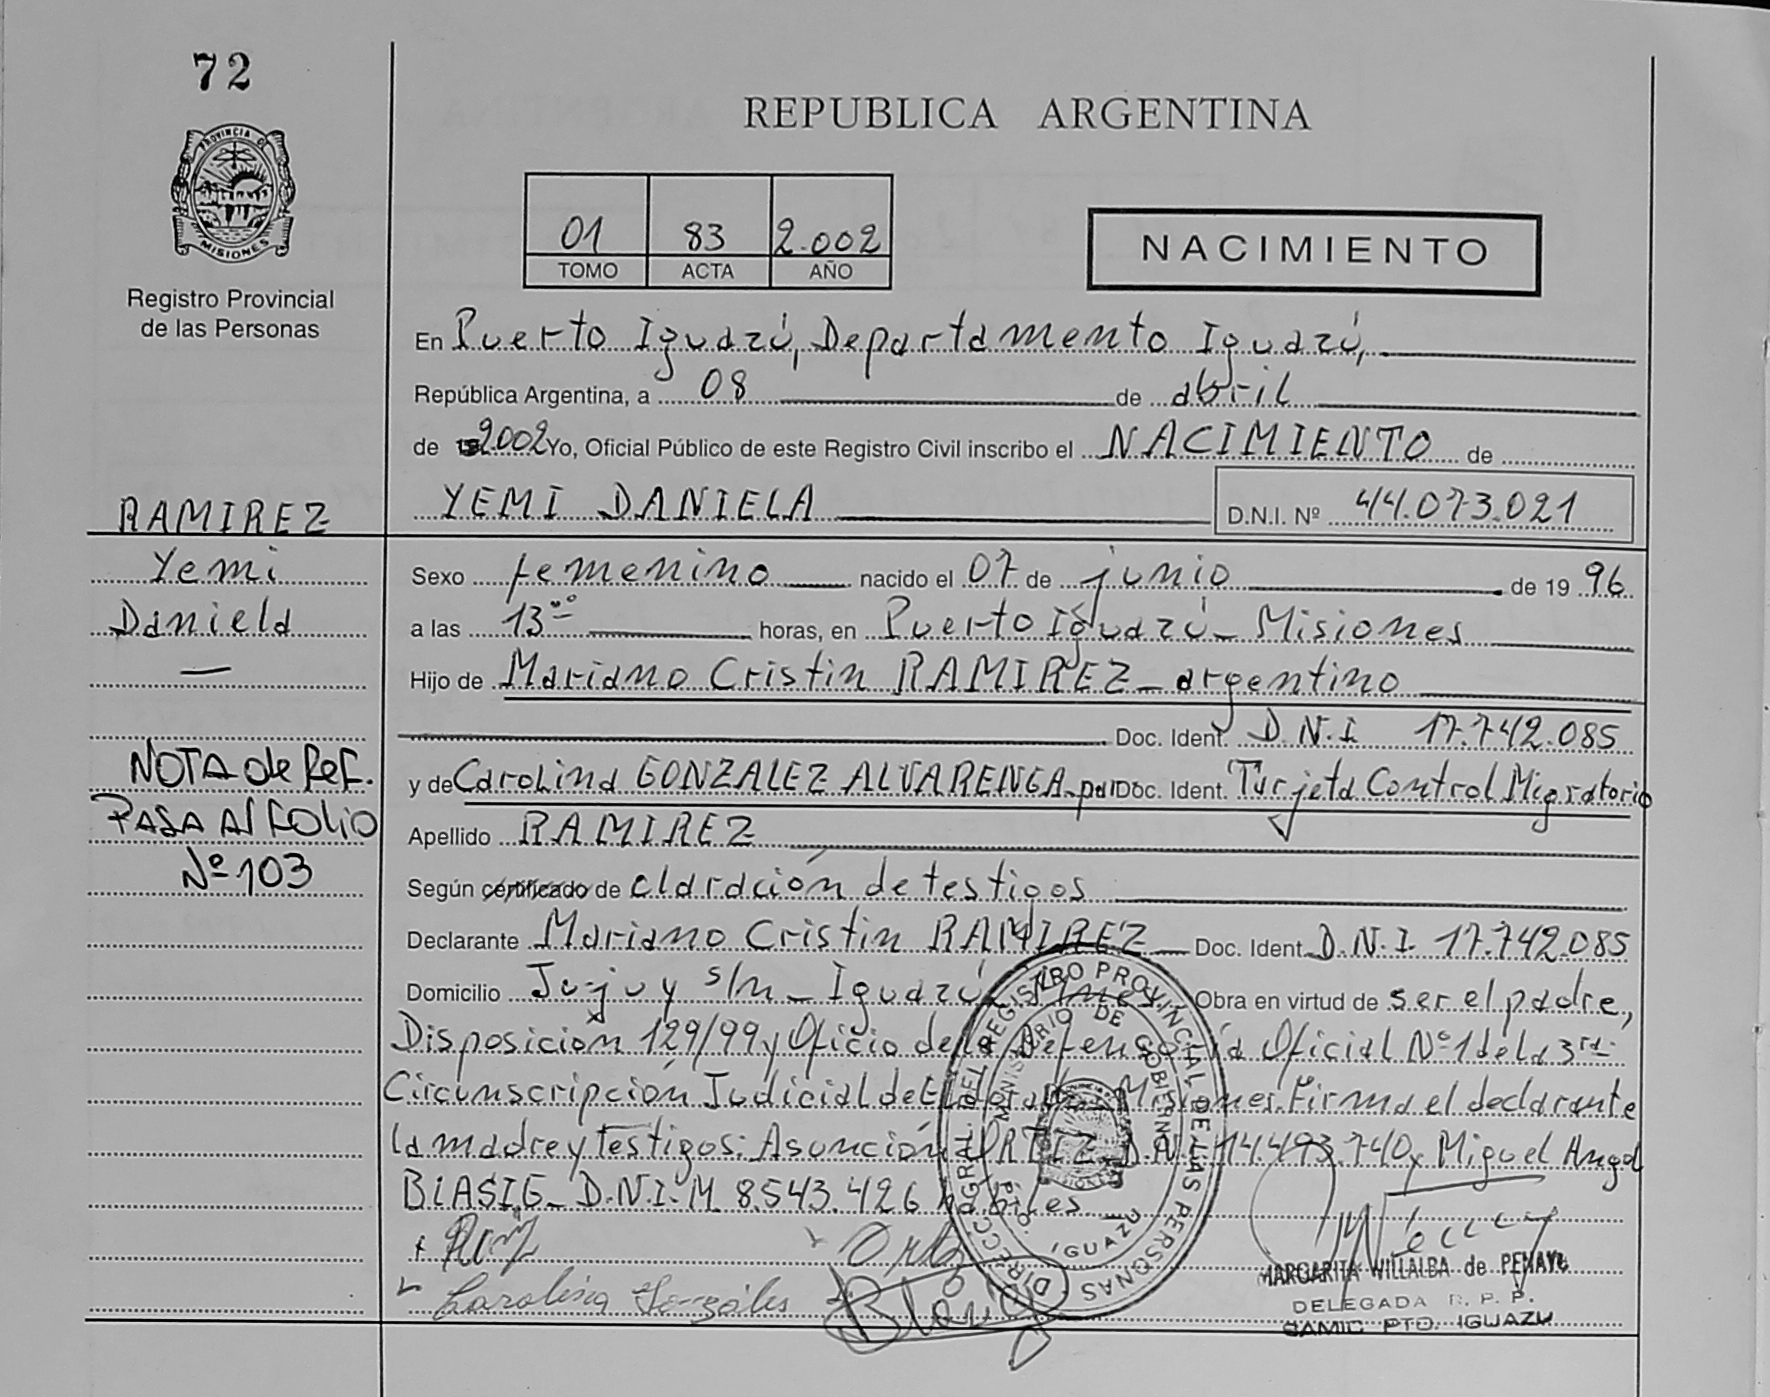 72
PROVINCIA DE
MISIONES
Registro Provincial
de las Personas
REPUBLICA ARGENTINA
01 83 2.002
TOMO ACTA AÑO
NACIMIENTO
En Puerto Iguazú, Departamento Iguazú,
República Argentina, a 08 de abril
de 2002 Yo, Oficial Público de este Registro Civil inscribo el NACIMIENTO de
YEMI DANIELA D.N.I. Nº 44.073.021
RAMIREZ
Yemi
Daniela
NOTA de Ref.
PASA Al FOLIO
Nº 103
Sexo femenino nacido el 07 de junio de 19 96
a las 13 horas, en Puerto Iguazú - Misiones
Hijo de Mariano Cristin RAMIREZ - argentino
Doc. Ident. D.N.I 17.742.085
y de Carolina GONZALEZ ALVARENGA - Doc. Ident. Tarjeta Control Migratorio
Apellido RAMIREZ
Según certificado de claración de testigos
Declarante Mariano Cristin RAMIREZ Doc. Ident. D.N.I. 17.742.085
Domicilio Jujuy s/n - Iguazú Obra en virtud de ser el padre,
Disposición 129/99 y Oficio de la Defensoría Oficial Nº 1 de la 3ra
Circunscripción Judicial de Eldorado - Misiones. Firma el declarante
la madre y testigos: Asunción ORTIZ D.N.I 14.493.740 y Miguel Angel
BLASIG - D.N.I. M 8.543.426 hábiles
Carolina Gonzáles
DIRECC. GRAL. DEL REGISTRO PROVINCIAL DE LAS PERSONAS
MINISTERIO DE GOBIERNO
PTO. IGUAZU
MARGARITA VILLALBA de PENAYO
DELEGADA R. P. P.
SAMIC PTO. IGUAZU